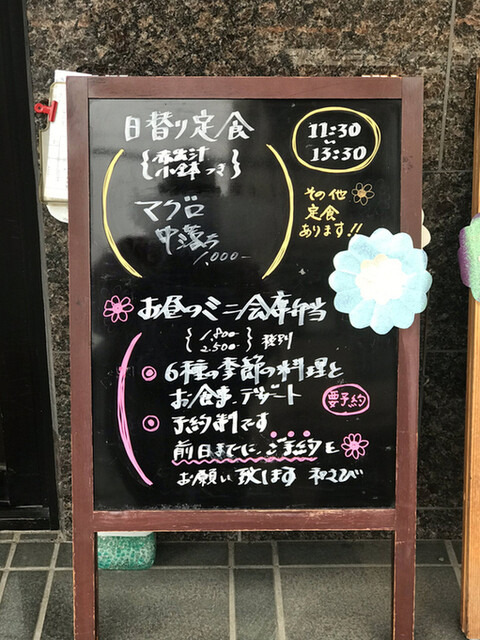 日替り定食
赤出汁
小鉢 つき
11:30
〜
13:30
マグロ
中落ち
1,000-
その他
定食
あります!!
お昼のミニ会席弁当
1,800-
2,500-
税別
6種の季節の料理と
お食事、デザート
要予約
予約制です
前日までに、ご予約を
お願い致します わさび